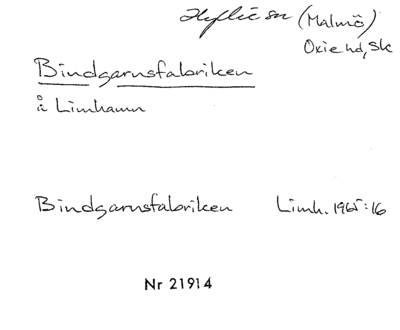 Hyllie sn (Malmö)
Oxie hd, Sk
Bindgarnsfabriken
å Limhamn
Bindgarnsfabriken Limh. 1965:16
Nr 21914